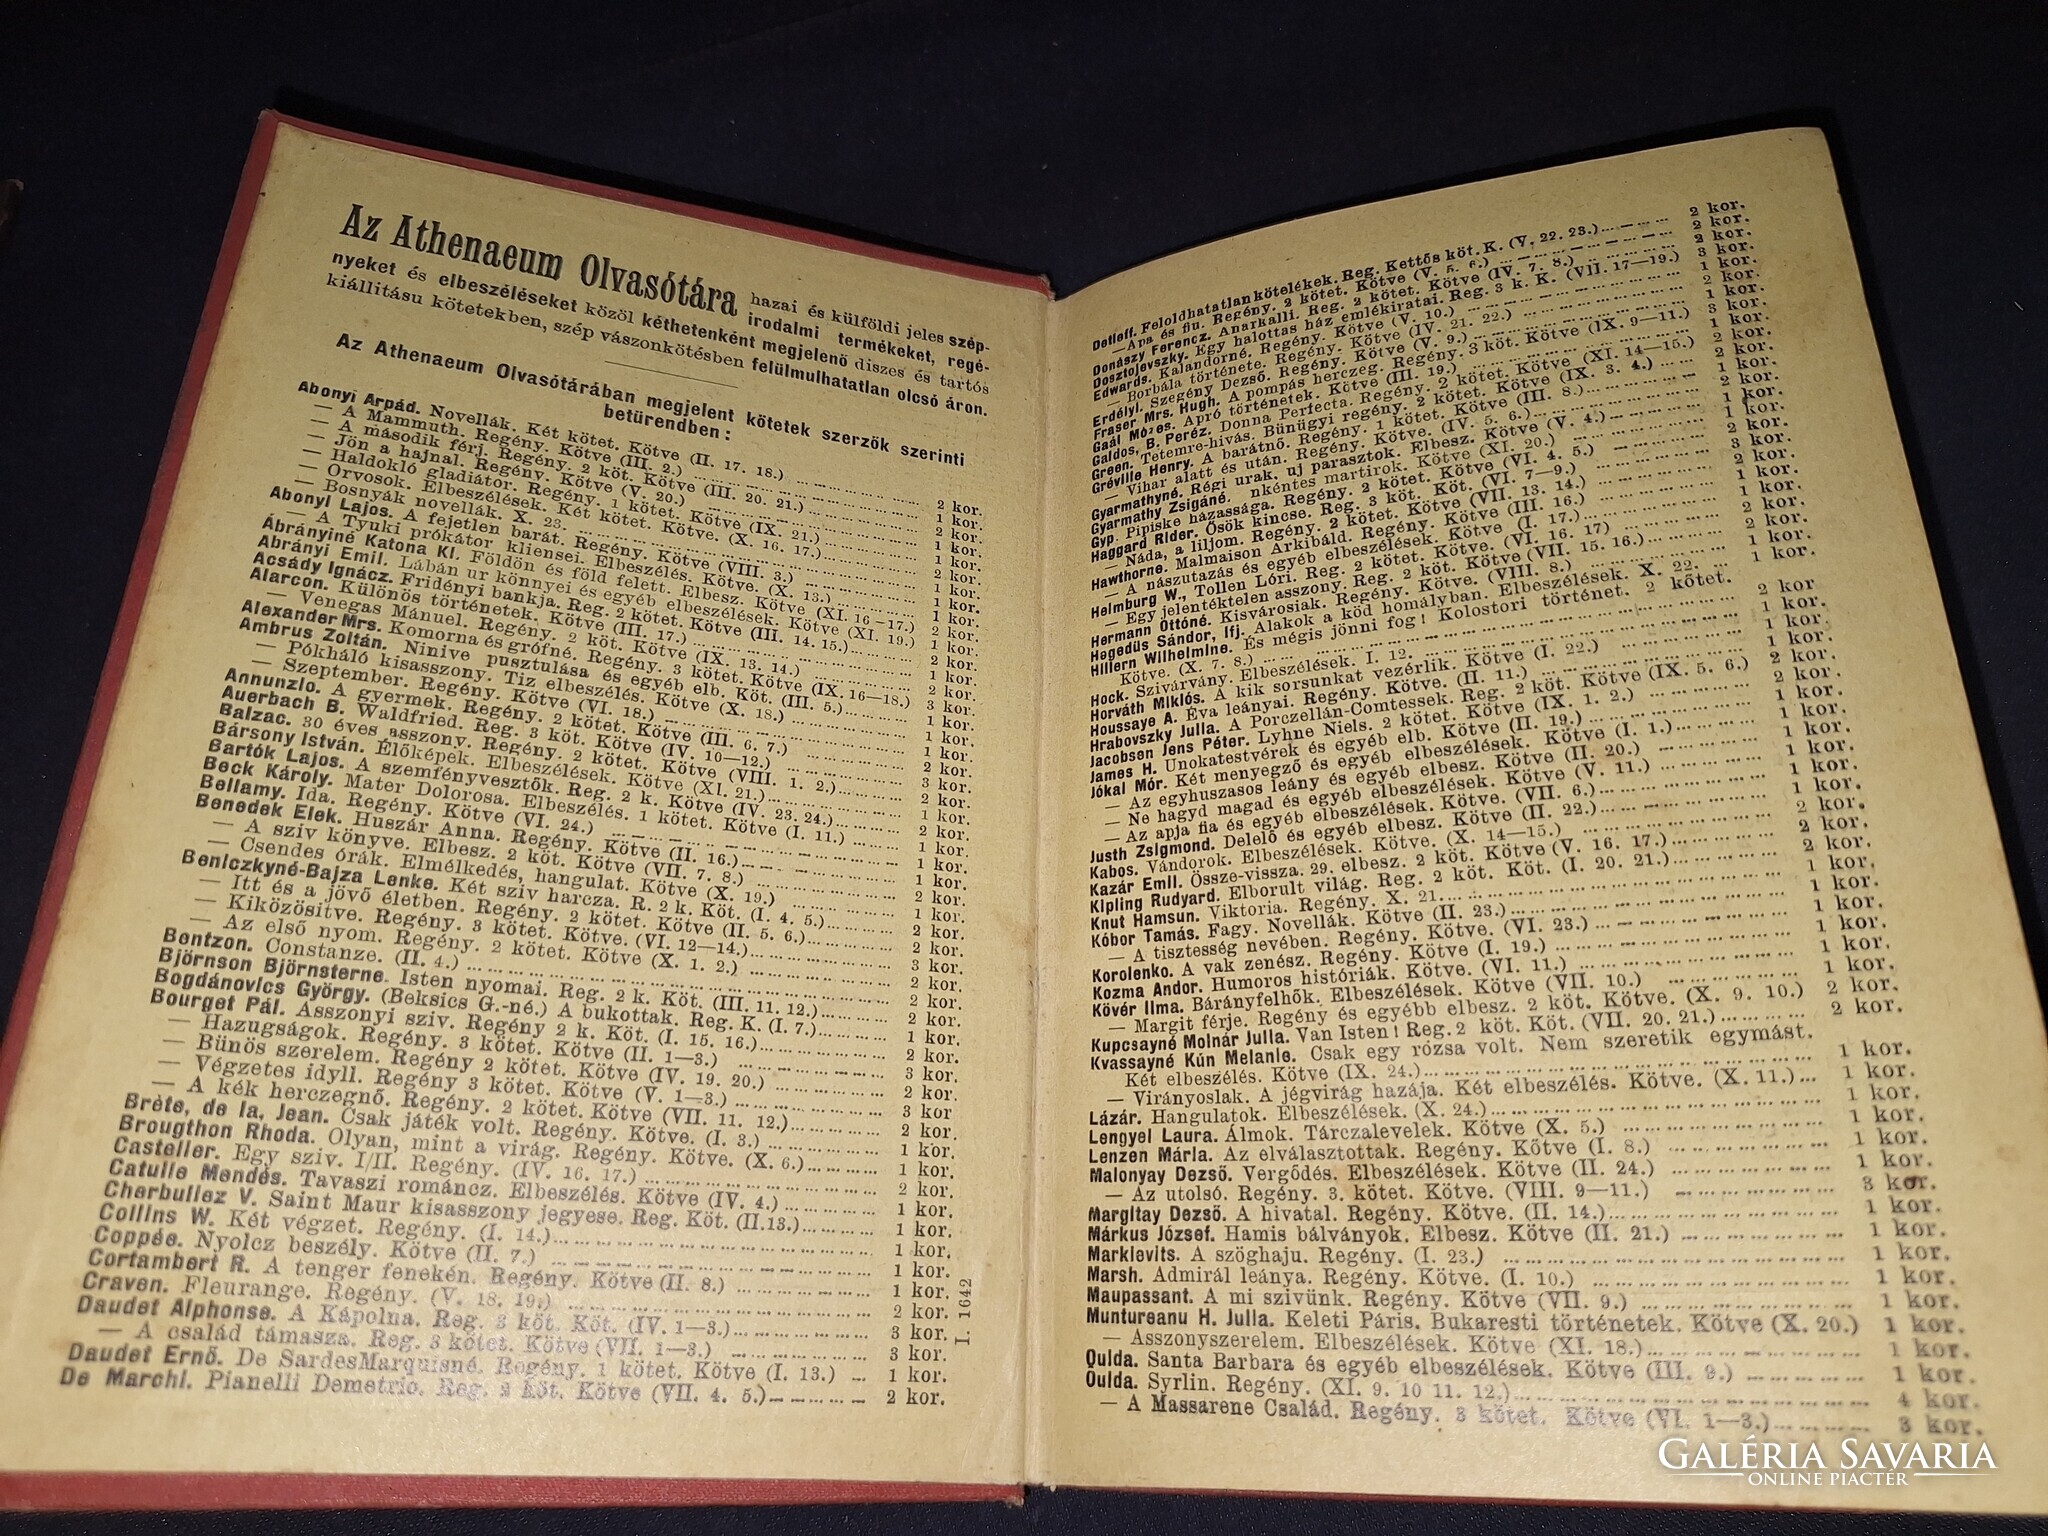 Az Athenaeum Olvasótára hazai és külföldi jeles szép-
irodalmi termékeket, regé-
nyeket és elbeszéléseket közöl kéthetenként megjelenő diszes és tartós
kiállitásu kötetekben, szép vászonkötésben felülmulhatatlan olcsó áron.
Az Athenaeum Olvasótárában megjelent kötetek szerzők szerinti
betürendben:
Abonyi Árpád. Novellák. Két kötet. Kötve (II. 17. 18.) 2 kor.
— A Mammuth. Regény. Kötve (III. 2.) 1 kor.
— A második férj. Regény. 2 köt. Kötve (III. 20. 21.) 2 kor.
— Jön a hajnal. Regény. Kötve (V. 20.) 1 kor.
— Haldokló gladiátor. Regény. 1 kötet. Kötve (IX. 21.) 1 kor.
— Orvosok. Elbeszélések. Két kötet. Kötve. (X. 16. 17.) 2 kor.
— Bosnyák novellák. X. 23. 1 kor.
Abonyi Lajos. A fejetlen barát. Regény. Kötve (VIII. 3.) 1 kor.
— A Tyuki prókátor kliensei. Elbeszélés. Kötve. (X. 13.) 1 kor.
Ábrányiné Katona Kl. Földön és föld felett. Elbesz. Kötve (XI. 16-17.) 2 kor.
Ábrányi Emil. Lábán ur könnyei és egyéb elbeszélések. Kötve (XI. 19.) 1 kor.
Acsády Ignácz. Fridényi bankja. Reg. 2 kötet. Kötve (III. 14. 15.) 2 kor.
Alarcon. Különös történetek. Kötve (III. 17.) 1 kor.
— Venegas Mánuel. Regény. 2 köt. Kötve (IX. 13. 14.) 2 kor.
Alexander Mrs. Komorna és grófné. Regény. 3 kötet. Kötve (IX. 16—18.) 3 kor.
Ambrus Zoltán. Ninive pusztulása és egyéb elb. Köt. (III. 5.) 1 kor.
— Pókháló kisasszony. Tiz elbeszélés. Kötve. (X. 18.) 1 kor.
— Szeptember. Regény. Kötve (VI. 18.) 1 kor.
Annunzio. A gyermek. Regény. 2 kötet. Kötve (III. 6. 7.) 2 kor.
Auerbach B. Waldfried. Reg. 3 köt. Kötve (IV. 10—12.) 3 kor.
Balzac. 30 éves asszony. Regény. 2 kötet. Kötve (VIII. 1. 2.) 2 kor.
Bársony István. Élőképek. Elbeszélések. Kötve (XI. 21.) 1 kor.
Bartók Lajos. A szemfényvesztők. Reg. 2 k. Kötve (IV. 23. 24.) 2 kor.
Beck Károly. Mater Dolorosa. Elbeszélés. 1 kötet. Kötve (I. 11.) 1 kor.
Bellamy. Ida. Regény. Kötve (VI. 24.) 1 kor.
Benedek Elek. Huszár Anna. Regény. Kötve (II. 16.) 1 kor.
— A sziv könyve. Elbesz. 2 köt. Kötve (VII. 7. 8.) 2 kor.
— Csendes órák. Elmélkedés, hangulat. Kötve (X. 19.) 1 kor.
Beniczkyné-Bajza Lenke. Két sziv harcza. R. 2 k. Köt. (I. 4. 5.) 2 kor.
— Itt és a jövő életben. Regény. 2 kötet. Kötve (II. 5. 6.) 2 kor.
— Kiközösitve. Regény. 3 kötet. Kötve. (VI. 12—14.) 3 kor.
— Az első nyom. Regény. 2 kötet. Kötve (X. 1. 2.) 2 kor.
Bentzon. Constanze. (II. 4.)
Björnson Björnsterne. Isten nyomai. Reg. 2 k. Köt. (III. 11. 12.) 2 kor.
Bogdánovics György. (Beksics G.-né.) A bukottak. Reg. K. (I. 7.) 1 kor.
Bourget Pál. Asszonyi sziv. Regény 2 k. Köt. (I. 15. 16.) 2 kor.
— Hazugságok. Regény. 3 kötet. Kötve (II. 1—3.) 3 kor.
— Bünös szerelem. Regény 2 kötet. Kötve (IV. 19. 20.) 2 kor.
— Végzetes idyll. Regény 3 kötet. Kötve (V. 1—3.) 3 kor
— A kék herczegnő. Regény. 2 kötet. Kötve (VII. 11. 12.) 2 kor.
Brète, de la, Jean. Csak játék volt. Regény. Kötve. (I. 3.) 1 kor.
Brougthon Rhoda. Olyan, mint a virág. Regény. Kötve. (X. 6.) 1 kor.
Casteller. Egy sziv. I/II. Regény. (IV. 16. 17.) 2 kor.
Catulle Mendés. Tavaszi románcz. Elbeszélés. Kötve (IV. 4.) 1 kor.
Cherbuliez V. Saint Maur kisasszony jegyese. Reg. Köt. (II.13.) 1 kor.
Collins W. Két végzet. Regény. (I. 14.) 1 kor.
Coppée. Nyolcz beszély. Kötve (II. 7.) 1 kor.
Cortambert R. A tenger fenekén. Regény. Kötve (II. 8.) 1 kor.
Craven. Fleurange. Regény. (V. 18. 19.) 2 kor.
Daudet Alphonse. A Kápolna. Reg. 3 köt. Köt. (IV. 1—3.) 3 kor.
— A család támasza. Reg. 3 kötet. Kötve (VII. 1—3.) 3 kor.
Daudet Ernő. De SardesMarquisné. Regény. 1 kötet. Kötve (I. 13.) 1 kor.
De Marchi. Pianelli Demetrio. Reg. 2 köt. Kötve (VII. 4. 5.) 2 kor.
I. 1642
Detleff. Feloldhatatlan kötelékek. Reg. Kettős köt. K. (V. 22. 23.) 2 kor.
— Apa és fiu. Regény. 2 kötet. Kötve (V. 5. 6.) 2 kor.
Donászy Ferencz. Anarkalli. Reg. 2 kötet. Kötve (IV. 7. 8.) 2 kor.
Dosztojevszky. Egy halottas ház emlékiratai. Reg. 3 k. K. (VII. 17—19.) 3 kor.
Edwards. Kalandorné. Regény. Kötve (V. 10.) 1 kor.
— Borbála története. Regény. Kötve (IV. 21. 22.) 2 kor.
Erdélyi. Szegény Dezső. Regény. Kötve (V. 9.) 1 kor.
Fraser Mrs. Hugh. A pompás herczeg. Regény. 3 köt. Kötve (IX. 9—11.) 3 kor.
Gaál Mózes. Apró történetek. Kötve (III. 19.) 1 kor.
Galdos, B. Peréz. Donna Perfecta. Regény. 2 kötet. Kötve (XI. 14—15.) 2 kor.
Green. Tetemre-hivás. Bünügyi regény. 2 kötet. Kötve (IX. 3. 4.) 2 kor.
Gréville Henry. A barátnő. Regény. 1 kötet. Kötve (III. 8.) 1 kor.
— Vihar alatt és után. Regény. Kötve. (IV. 5. 6.) 2 kor.
Gyarmathyné. Régi urak, uj parasztok. Elbesz. Kötve (V. 4.) 1 kor.
Gyarmathy Zsigáné. nkéntes martirok. Kötve (XI. 20.) 1 kor.
Gyp. Pipiske házassága. Regény. 2 kötet. Kötve (VI. 4. 5.) 2 kor.
Haggard Rider. Ősök kincse. Reg. 3 köt. Köt. (VI. 7—9.) 3 kor.
— Náda, a liljom. Regény. 2 kötet. Kötve (VII. 13. 14.) 2 kor.
Hawthorne. Malmaison Arkibáld. Regény. Kötve (III. 16.) 1 kor.
— A nászutazás és egyéb elbeszélések. Kötve (I. 17.) 1 kor.
Heimburg W., Tollen Lóri. Reg. 2 kötet. Kötve (VI. 16. 17) 2 kor.
— Egy jelentéktelen asszony. Reg. 2 köt. Kötve (VII. 15. 16.) 2 kor.
Hermann Ottóné. Kisvárosiak. Regény. Kötve. (VIII. 8.) 1 kor.
Hegedüs Sándor, ifj. Alakok a köd homályban. Elbeszélések. X. 22. 1 kor.
Hillern Wilhelmine. És mégis jönni fog! Kolostori történet. 2 kötet.
Kötve. (X. 7. 8.) 2 kor
Hock. Szivárvány. Elbeszélések. I. 12. 1 kor.
Horváth Miklós. A kik sorsunkat vezérlik. Kötve (I. 22.) 1 kor.
Houssaye A. Éva leányai. Regény. Kötve. (II. 11.) 1 kor.
Hrabovszky Julia. A Porczellán-Comtessek. Reg. 2 köt. Kötve (IX. 5. 6.) 2 kor.
Jacobsen Jens Péter. Lyhne Niels. 2 kötet. Kötve (IX. 1. 2.) 2 kor.
James H. Unokatestvérek és egyéb elb. Kötve (II. 19.) 1 kor.
Jókai Mór. Két menyegző és egyéb elbeszélések. Kötve (I. 1.) 1 kor.
— Az egyhuszasos leány és egyéb elbesz. Kötve (II. 20.) 1 kor.
— Ne hagyd magad és egyéb elbeszélések. Kötve (V. 11.) 1 kor.
— Az apja fia és egyéb elbeszélések. Kötve. (VII. 6.) 1 kor.
Justh Zsigmond. Delelő és egyéb elbesz. Kötve (II. 22.) 1 kor.
Kabos. Vándorok. Elbeszélések. Kötve. (X. 14—15.) 2 kor.
Kazár Emil. Össze-vissza. 29. elbesz. 2 köt. Kötve (V. 16. 17.) 2 kor.
Kipling Rudyard. Elborult világ. Reg. 2 köt. Köt. (I. 20. 21.) 2 kor.
Knut Hamsun. Viktoria. Regény. X. 21. 1 kor.
Kóbor Tamás. Fagy. Novellák. Kötve (II. 23.) 1 kor.
— A tisztesség nevében. Regény. Kötve. (VI. 23.) 1 kor.
Korolenko. A vak zenész. Regény. Kötve (I. 19.) 1 kor.
Kozma Andor. Humoros históriák. Kötve. (VI. 11.) 1 kor.
Kövér Ilma. Bárányfelhők. Elbeszélések. Kötve (VII. 10.) 1 kor.
— Margit férje. Regény és egyébb elbesz. 2 köt. Kötve. (X. 9. 10.) 2 kor.
Kupcsayné Molnár Julia. Van Isten! Reg. 2 köt. Köt. (VII. 20. 21.) 2 kor.
Kvassayné Kún Melanie. Csak egy rózsa volt. Nem szeretik egymást.
Két elbeszélés. Kötve (IX. 24.) 1 kor.
— Virányoslak. A jégvirág hazája. Két elbeszélés. Kötve. (X. 11.) 1 kor.
Lázár. Hangulatok. Elbeszélések. (X. 24.) 1 kor.
Lengyel Laura. Álmok. Tárczalevelek. Kötve (X. 5.) 1 kor.
Lenzen Mária. Az elválasztottak. Regény. Kötve (I. 8.) 1 kor.
Malonyay Dezső. Vergődés. Elbeszélések. Kötve (II. 24.) 1 kor.
— Az utolsó. Regény. 3. kötet. Kötve. (VIII. 9—11.) 3 kor.
Margitay Dezső. A hivatal. Regény. Kötve. (II. 14.) 1 kor.
Márkus József. Hamis bálványok. Elbesz. Kötve (II. 21.) 1 kor.
Markievits. A szöghaju. Regény. (I. 23.) 1 kor.
Marsh. Admirál leánya. Regény. Kötve. (I. 10.) 1 kor.
Maupassant. A mi szivünk. Regény. Kötve (VII. 9.) 1 kor.
Muntureanu H. Julia. Keleti Páris. Bukaresti történetek. Kötve (X. 20.) 1 kor.
— Asszonyszerelem. Elbeszélések. Kötve (XI. 18.) 1 kor.
Quida. Santa Barbara és egyéb elbeszélések. Kötve (III. 9.) 1 kor.
Oulda. Syrlin. Regény. (XI. 9. 10 11. 12.) 4 kor.
— A Massarene Család. Regény. 3 kötet. Kötve (VI. 1—3.) 3 kor.
GALÉRIA SAVARIA
ONLINE PIACTÉR